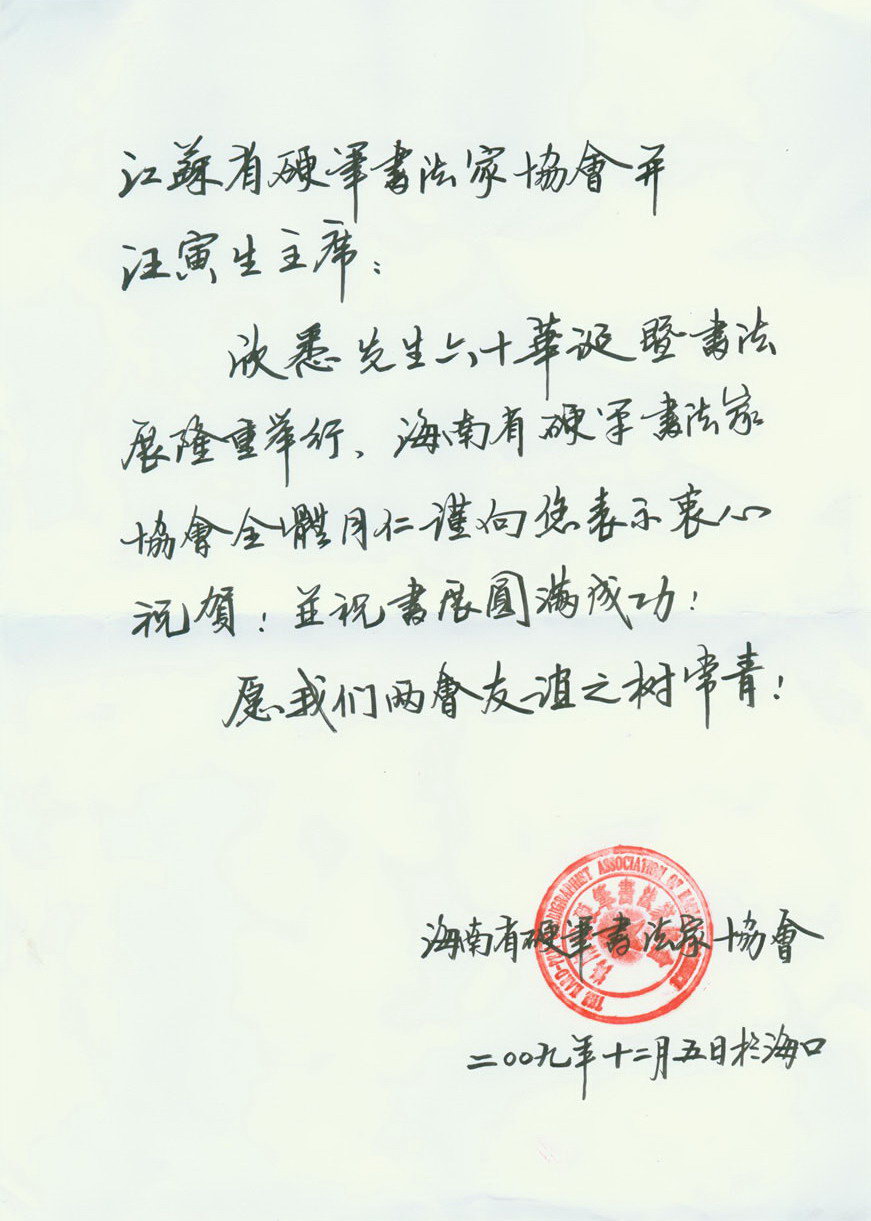 江蘇省硬筆書法家協會并
汪寅生主席：
欣悉先生六十華诞暨書法
展隆重舉行、海南省硬筆書法家
協會全體同仁謹向您表示衷心
祝賀！並祝書展圓滿成功！
愿我们两會友谊之树常青！
海南省硬筆書法家協會
二〇〇九年十二月五日於海口